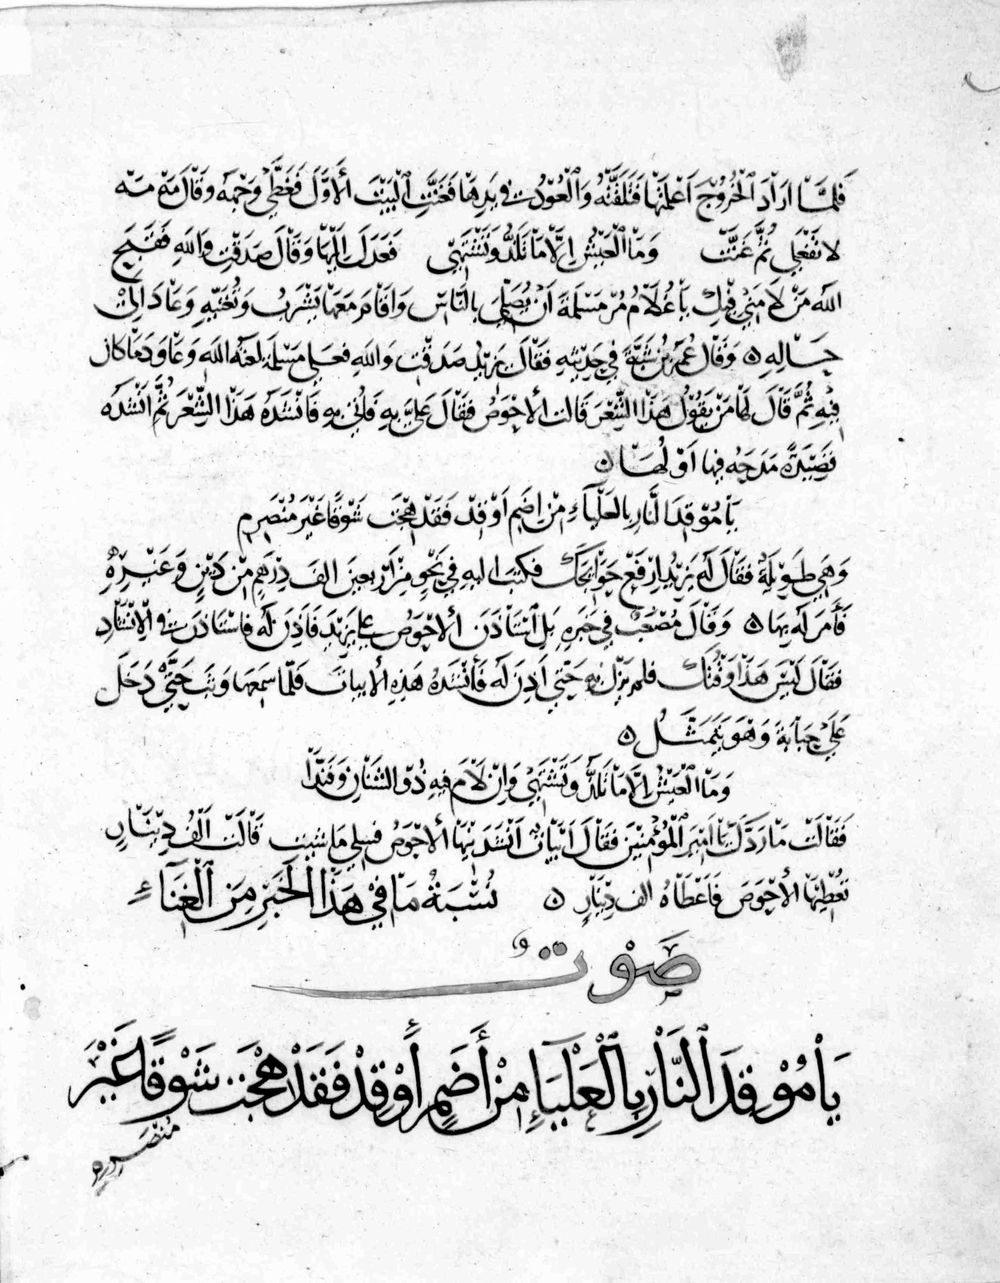 فَلمَّا ارَادَ الْخُرُوْجَ اَعْلمَتْهَا فَتَلَقَّتْهُ وَالْعُوْدُ فى يَدِهَا فَغَنَّتِ الْبَيْتَ الْأَوَّلَ فَغَطَّى وَجْهَه وَقَالَ مَه مَه
لا تفْعَلِى ثُمَّ غَنَّتْ وَمَا الْعَيْشُ اِلَّا مَا تَلَذُّ وَتَشْتَهِى فَعَدَلَ اِلَيْهَا وَقَالَ صَدَقْتِ وَاللهِ فَقَبَّحَ
اللهُ مَنْ لَامَنِى فِيْكِ يا غُلَامُ مُرْ مَسْلمَةَ اَنْ يُصَلِّىَ بالنَّاسِ وَاَقَامَ مَعَهَا يَشْرَبُ وَتُغَنِّيْهِ وَعَادَ اِلىٰ
حَالِهِ ۞ وَقَالَ عُمَرُ بْنُ شَبَّةَ فى حَدِيْثِهِ فَقَالَ يَزِيْدُ صَدَقْتِ وَاللهِ فعَلى مَسْلمَةَ لعْنَهُ اللهِ وَعَاوَدَ مَا كَانَ
فِيْهِ ثُمَّ قَالَ لهَا مَنْ يَقُوْلُ هَذَا الشِّعْرَ قَالَت الْأَحْوَصُ فقَالَ عَلىَّ بِهِ فَاُتِىَ بِهِ فَاَنْشَدَهُ هَذَا الشِّعْرَ ثُمَّ انشَدَه
قَصِيْدَةً مَدَحَهُ فِيهَا اَوَّلُهَا ۞
يَا مُوْقِدَ النَّارِ بالعَلْيَآءِ مِنْ اِضَمِ اَوْقِدْ فَقَدْ هِجْتَ شَوْقًا غَيْرَ مُنْصَرِمِ
وَهِىَ طَوِيْلَةٌ فقَالَ لَه يَزِيْدُ ارْفَعْ حَوَائِجَكَ فكتَبَ اليهِ فى نَحْوٍ مِنْ اَرْبعين الفَ دِرْهَمٍ مِنْ دَيْنٍ وَغَيْرِهِ
فَأَمَرَ لَه بِهَا ۞ وَقَالَ مُصْعَبٌ فى خَبَرِهِ بَلِ اسْتَاْذَنَ الْأَحْوَصُ عَلى يَزِيْدَ فَاَذِنَ لَه فاسْتَاذَنَ فى الْاِنْشَادِ
فقَالَ لَيْسَ هَذَا وَقْتَكَ فلم يَزَلْ بِهِ حَتَّى اَذِنَ لَه فَأَنْشَدَهُ هَذِهِ الْأَبياتَ فَلَمَّا سَمِعَهَا وَثَبَ حَتَّى دَخَلَ
عَلَى حَبَابةَ وَهُوَ يَتَمَثَّلُ ۞
وَمَا الْعَيْشُ اِلَّا مَا تَلَذُّ وَتَشْتَهِى وَاِنْ لَامَ فيهِ ذُوْ الشَّنَانِ وَفَنَّدَا
فَقَالَتْ مَا رَدَّكَ يَا اَمِيْرَ الْمُؤْمِنِيْنَ فقَالَ اَبْيَاتٌ اَنْشَدَنِيْهَا الْأَحْوَصُ فسَلِى مَا شِئْتِ قَالَتْ الْفُ دِيْنَارٍ
تُعْطِيْهَا الْأَحْوَصَ فَاَعْطَاهُ الفَ دِيْنَارٍ ۞ نِسْبَةُ مَا فِىْ هَذَا الْخَبَرِ مِنَ الْغِنَآءِ
صَوْتٌ
يَا مُوْقِدَ النَّارِ بِالْعَلْيَآءِ مِنْ أَضَمٍ أَوْقِدْ فَقَدْ هِجْتَ شَوْقًا غَيْرَ
منصرم